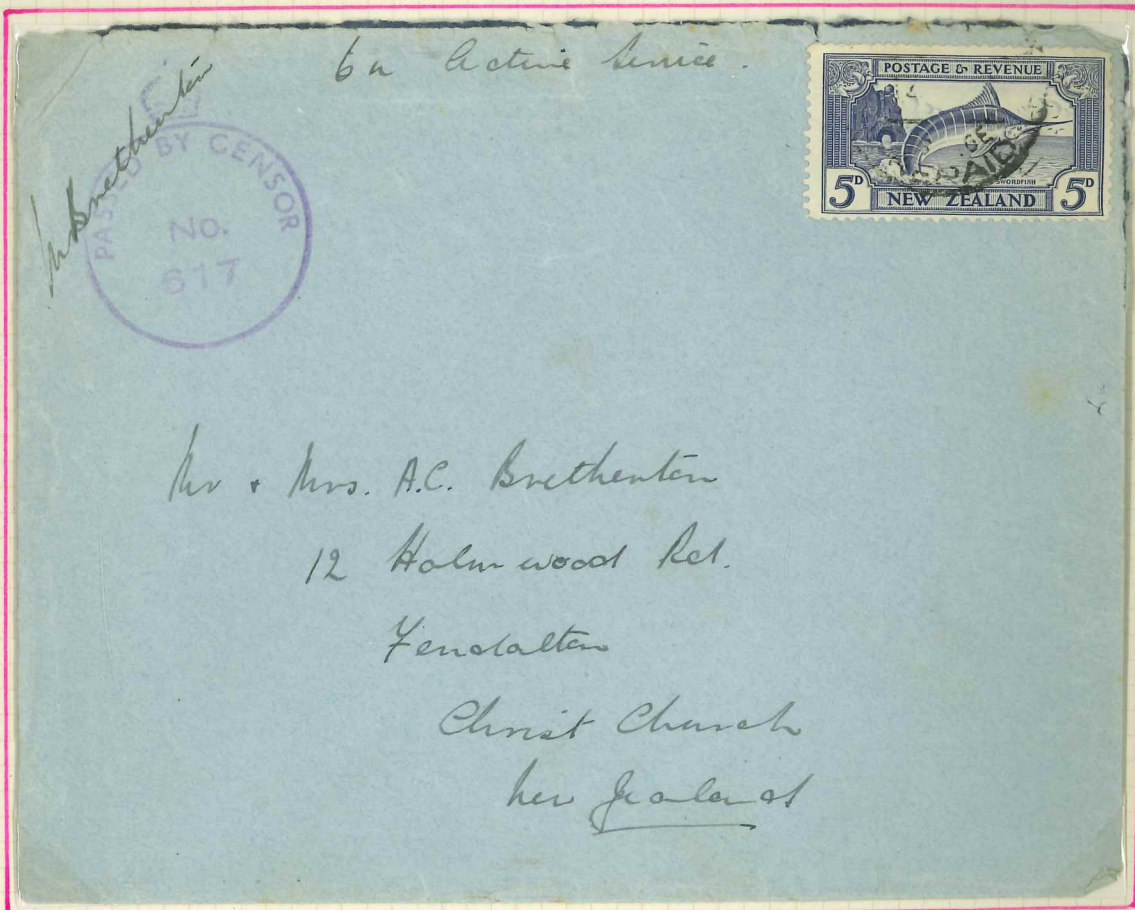 On Active Service.
M Bretherton
PASSED BY CENSOR
No.
617
POSTAGE & REVENUE
SWORDFISH
5D NEW ZEALAND 5D
PAID
Mr & Mrs. A.C. Bretherton
12 Holmwood Rd.
Fendalton
Christ Church
New Zealand